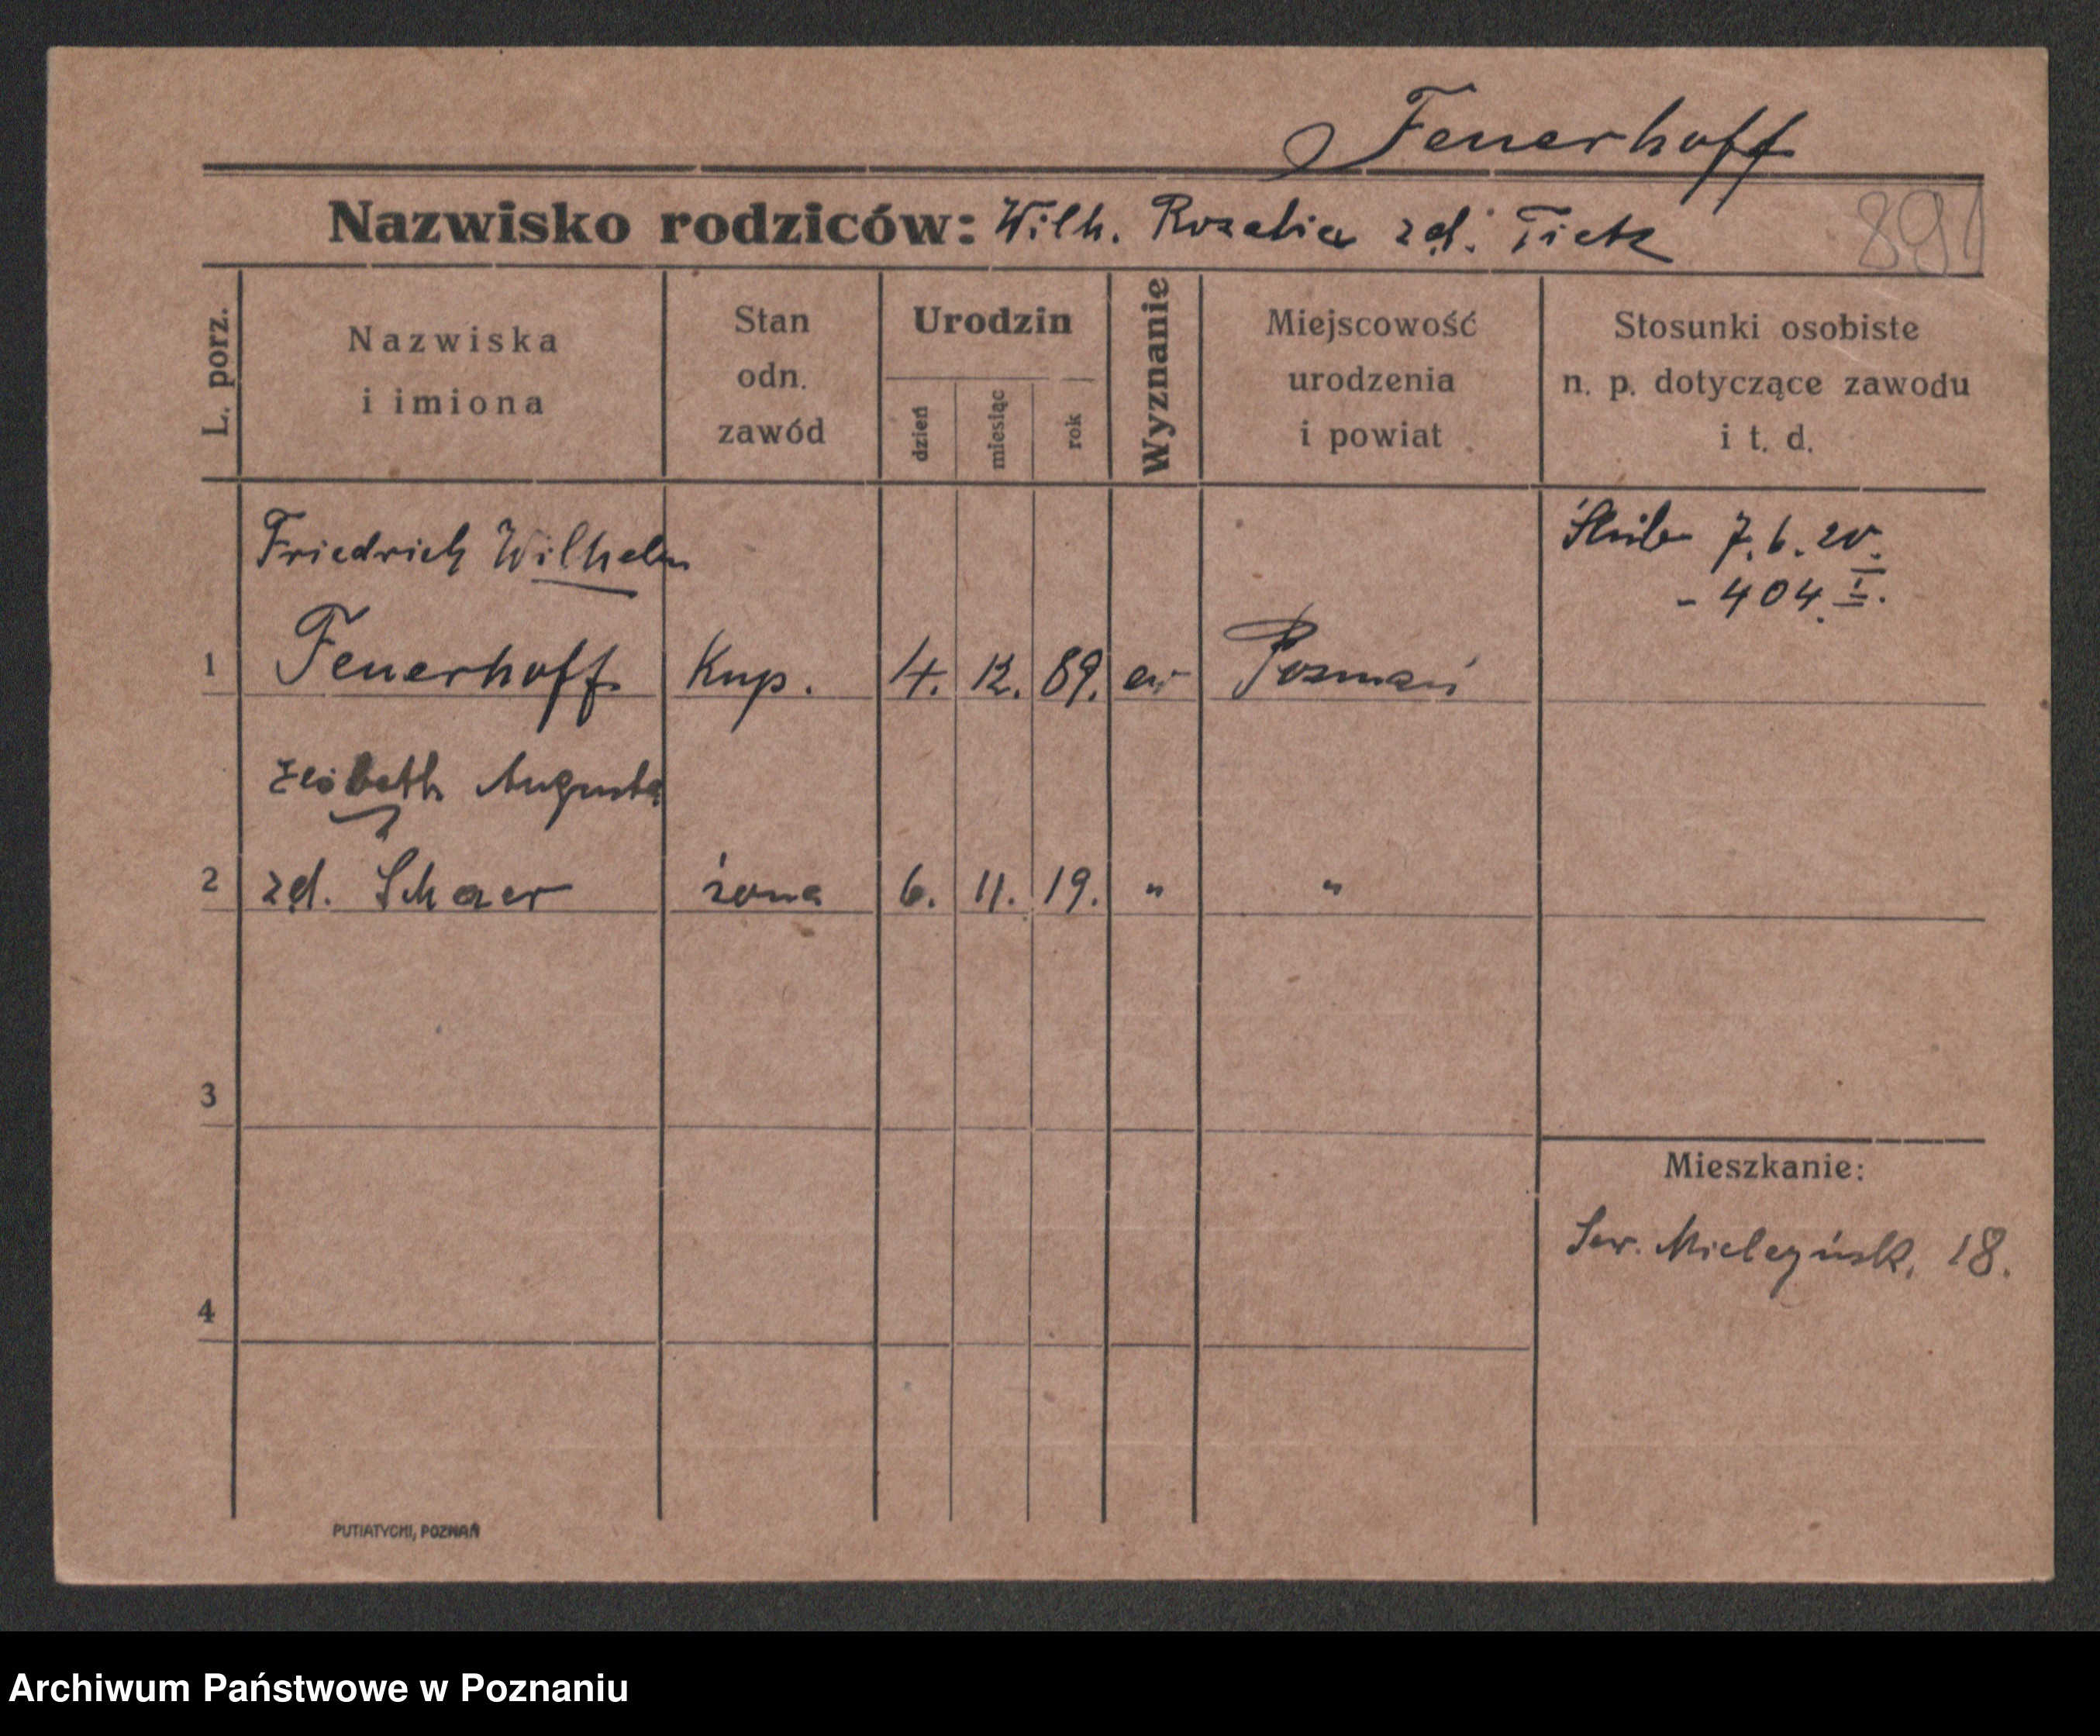 Feuerhoff
Nazwisko rodziców: Wilh. Rozalia zd. Tietz
891
L. porz.
Nazwiska
i imiona
Stan
odn.
zawód
Urodzin
dzień
miesiąc
rok
Wyznanie
Miejscowość
urodzenia
i powiat
Stosunki osobiste
n. p. dotyczące zawodu
i t. d.
Friedrich Wilhelm
Ślub 7.6.20.
- 404 I.
1 Feuerhoff Kup. 4. 12. 89. ew Poznań
Elisbeth Augusta
2 zd. Schaer żona 6. 11. 19. " "
3
Mieszkanie:
Sew. Mielczyńsk. 18.
4
PUTIATYCHI, POZNAŃ
Archiwum Państwowe w Poznaniu